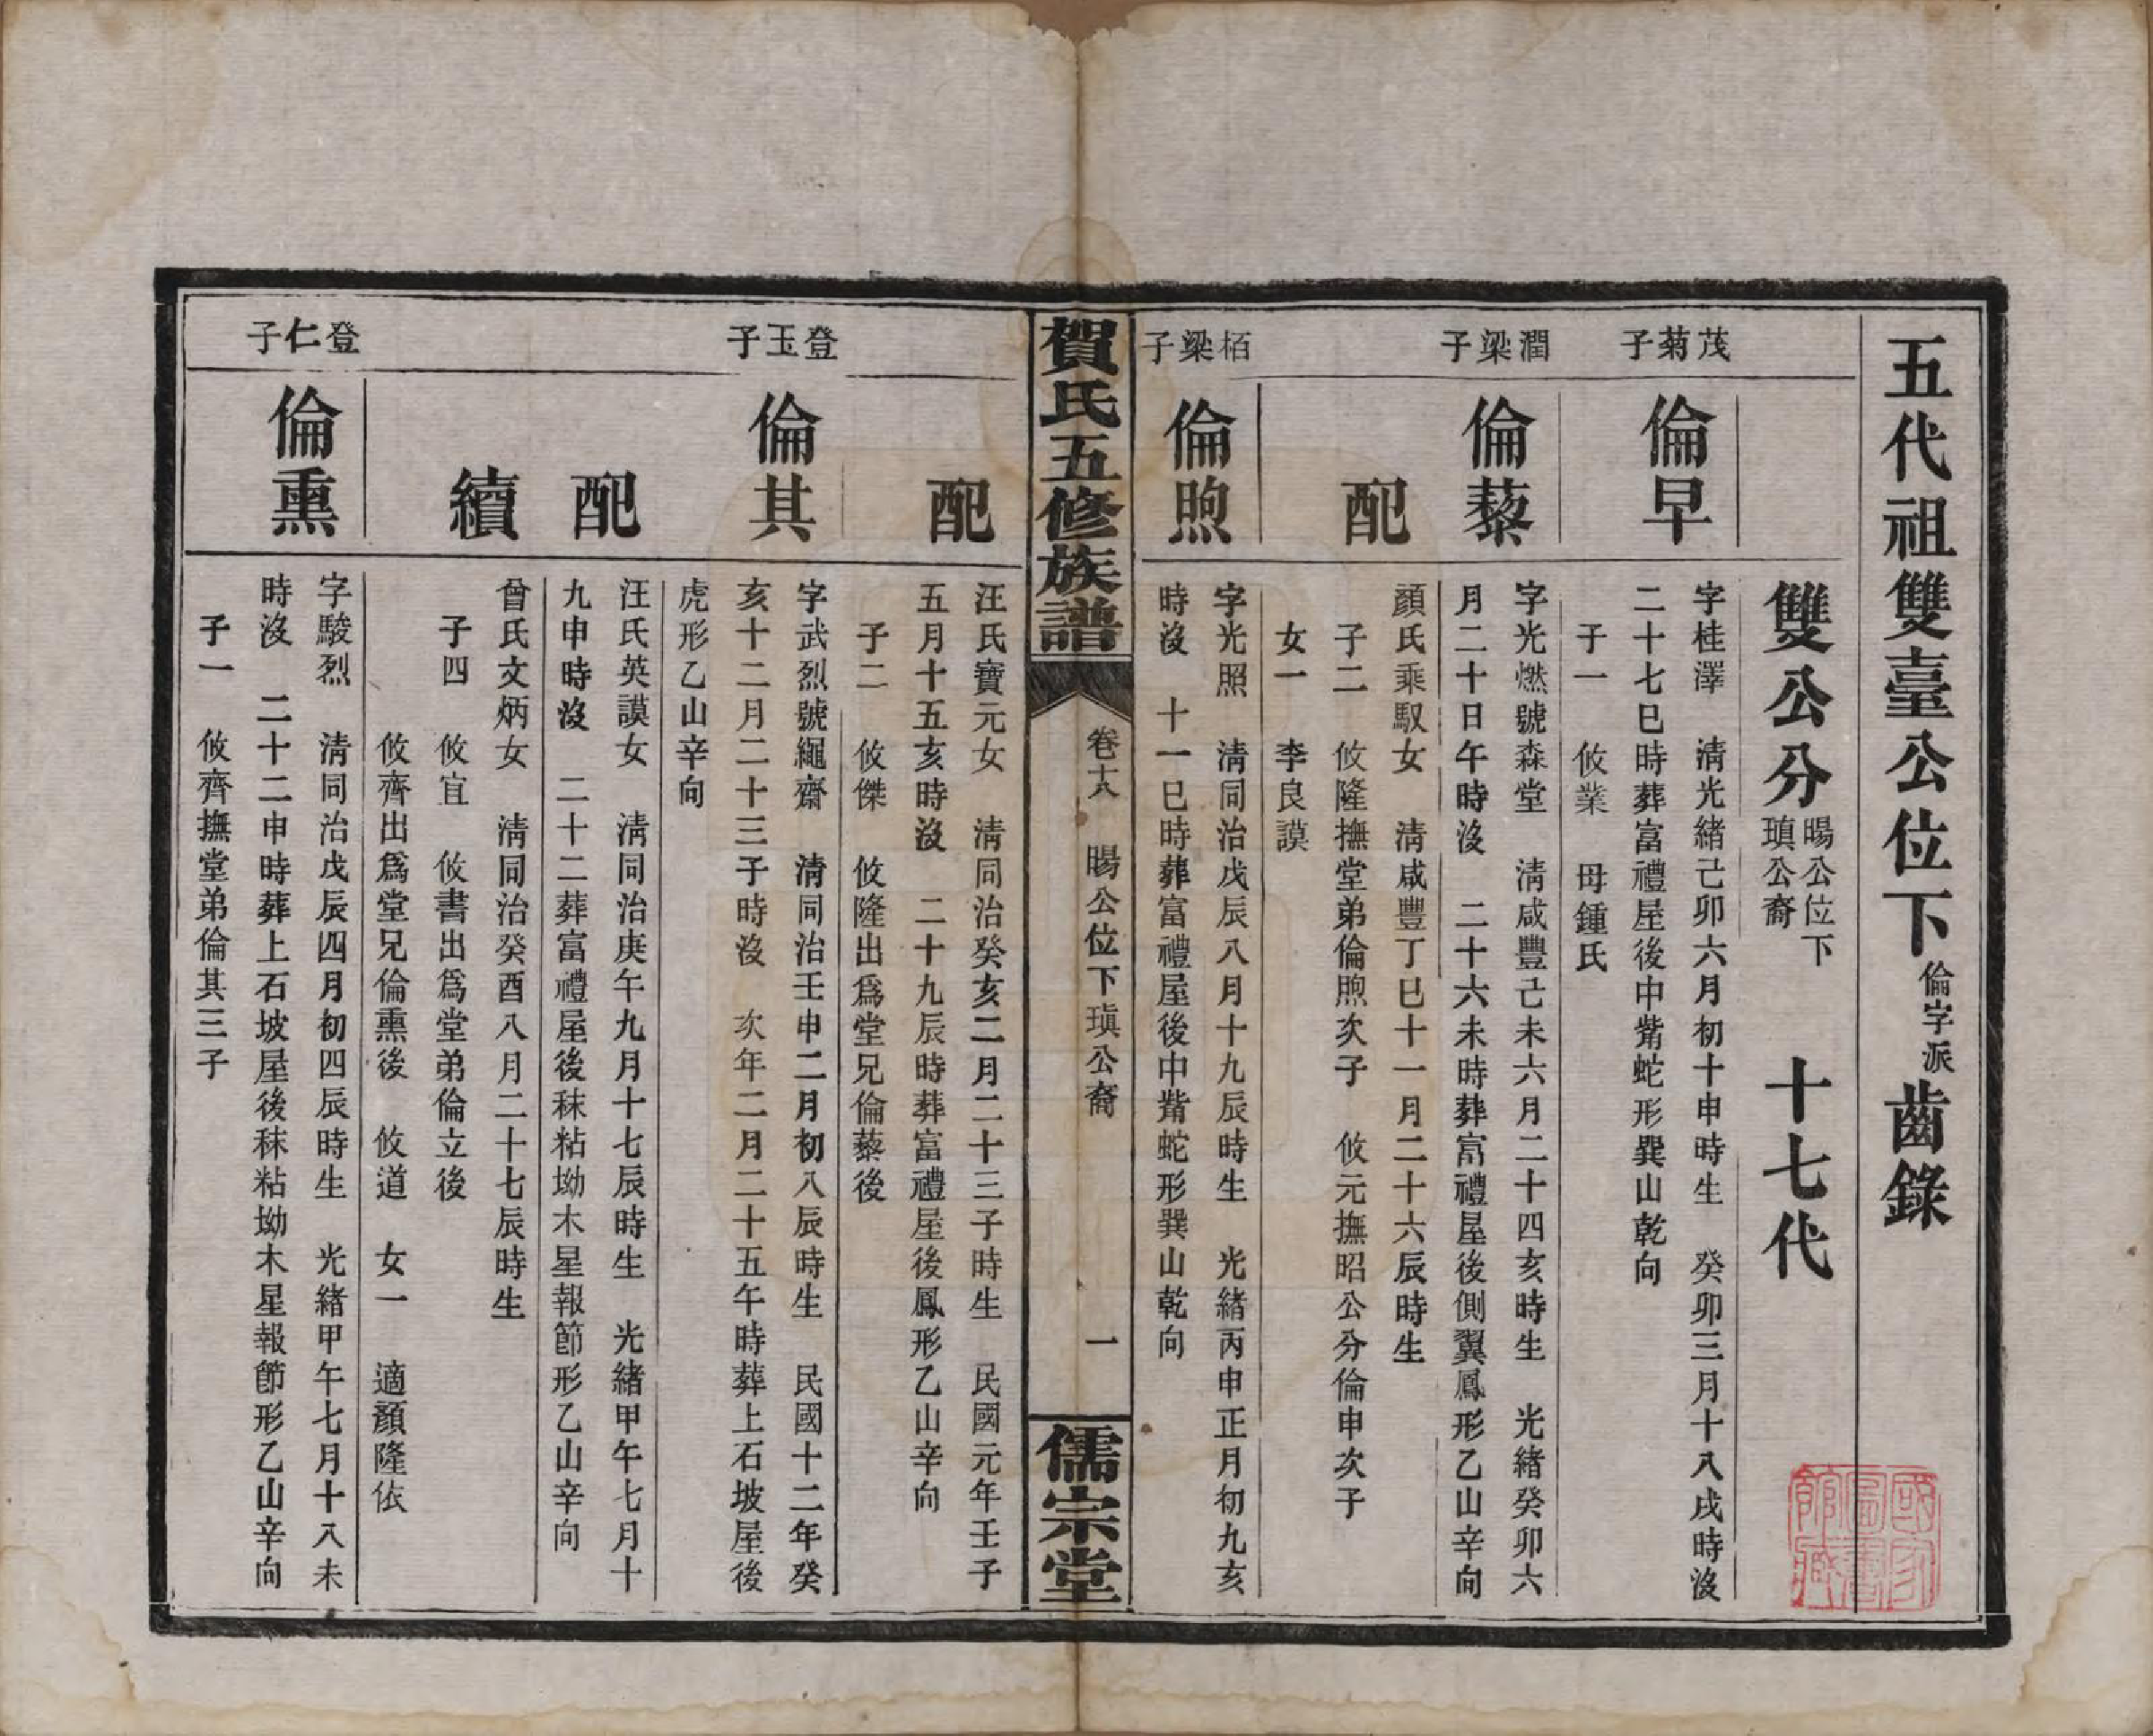 五代祖雙臺公位下倫字派齒錄
雙公分暘公位下瑱公裔　十七代
茂菊子
倫早
字桂澤　清光緒己卯六月初十申時生　癸卯三月十八戌時沒
二十七巳時葬富禮屋後中觜蛇形巽山乾向
子一　攸業　母鍾氏
潤梁子
倫藜
字光燃號森堂　清咸豐己未六月二十四亥時生　光緒癸卯六
月二十日午時沒　二十六未時葬富禮屋後側翼鳳形乙山辛向
配
顏氏乘馭女　清咸豐丁巳十一月二十六辰時生
子二　攸隆撫堂弟倫煦次子　攸元撫昭公分倫申次子
女一　李良謨
栢梁子
倫煦
字光照　清同治戊辰八月十九辰時生　光緒丙申正月初九亥
時沒　十一巳時葬富禮屋後中觜蛇形巽山乾向
賀氏五修族譜
卷十八　暘公位下瑱公裔　一
儒宗堂
配
汪氏寶元女　清同治癸亥二月二十三子時生　民國元年壬子
五月十五亥時沒　二十九辰時葬富禮屋後鳳形乙山辛向
子二　攸傑　攸隆出爲堂兄倫藜後
登玉子
倫其
字武烈號繩齋　清同治壬申二月初八辰時生　民國十二年癸
亥十二月二十三子時沒　次年二月二十五午時葬上石坡屋後
虎形乙山辛向
配
汪氏英謨女　清同治庚午九月十七辰時生　光緒甲午七月十
九申時沒　二十二葬富禮屋後秣粘坳木星報節形乙山辛向
續
曾氏文炳女　清同治癸酉八月二十七辰時生
子四　攸宜　攸書出爲堂弟倫立後
攸齊出爲堂兄倫熏後　攸道　女一　適顏隆依
登仁子
倫熏
字駿烈　清同治戊辰四月初四辰時生　光緒甲午七月十八未
時沒　二十二申時葬上石坡屋後秣粘坳木星報節形乙山辛向
子一　攸齊撫堂弟倫其三子
國家圖書館藏